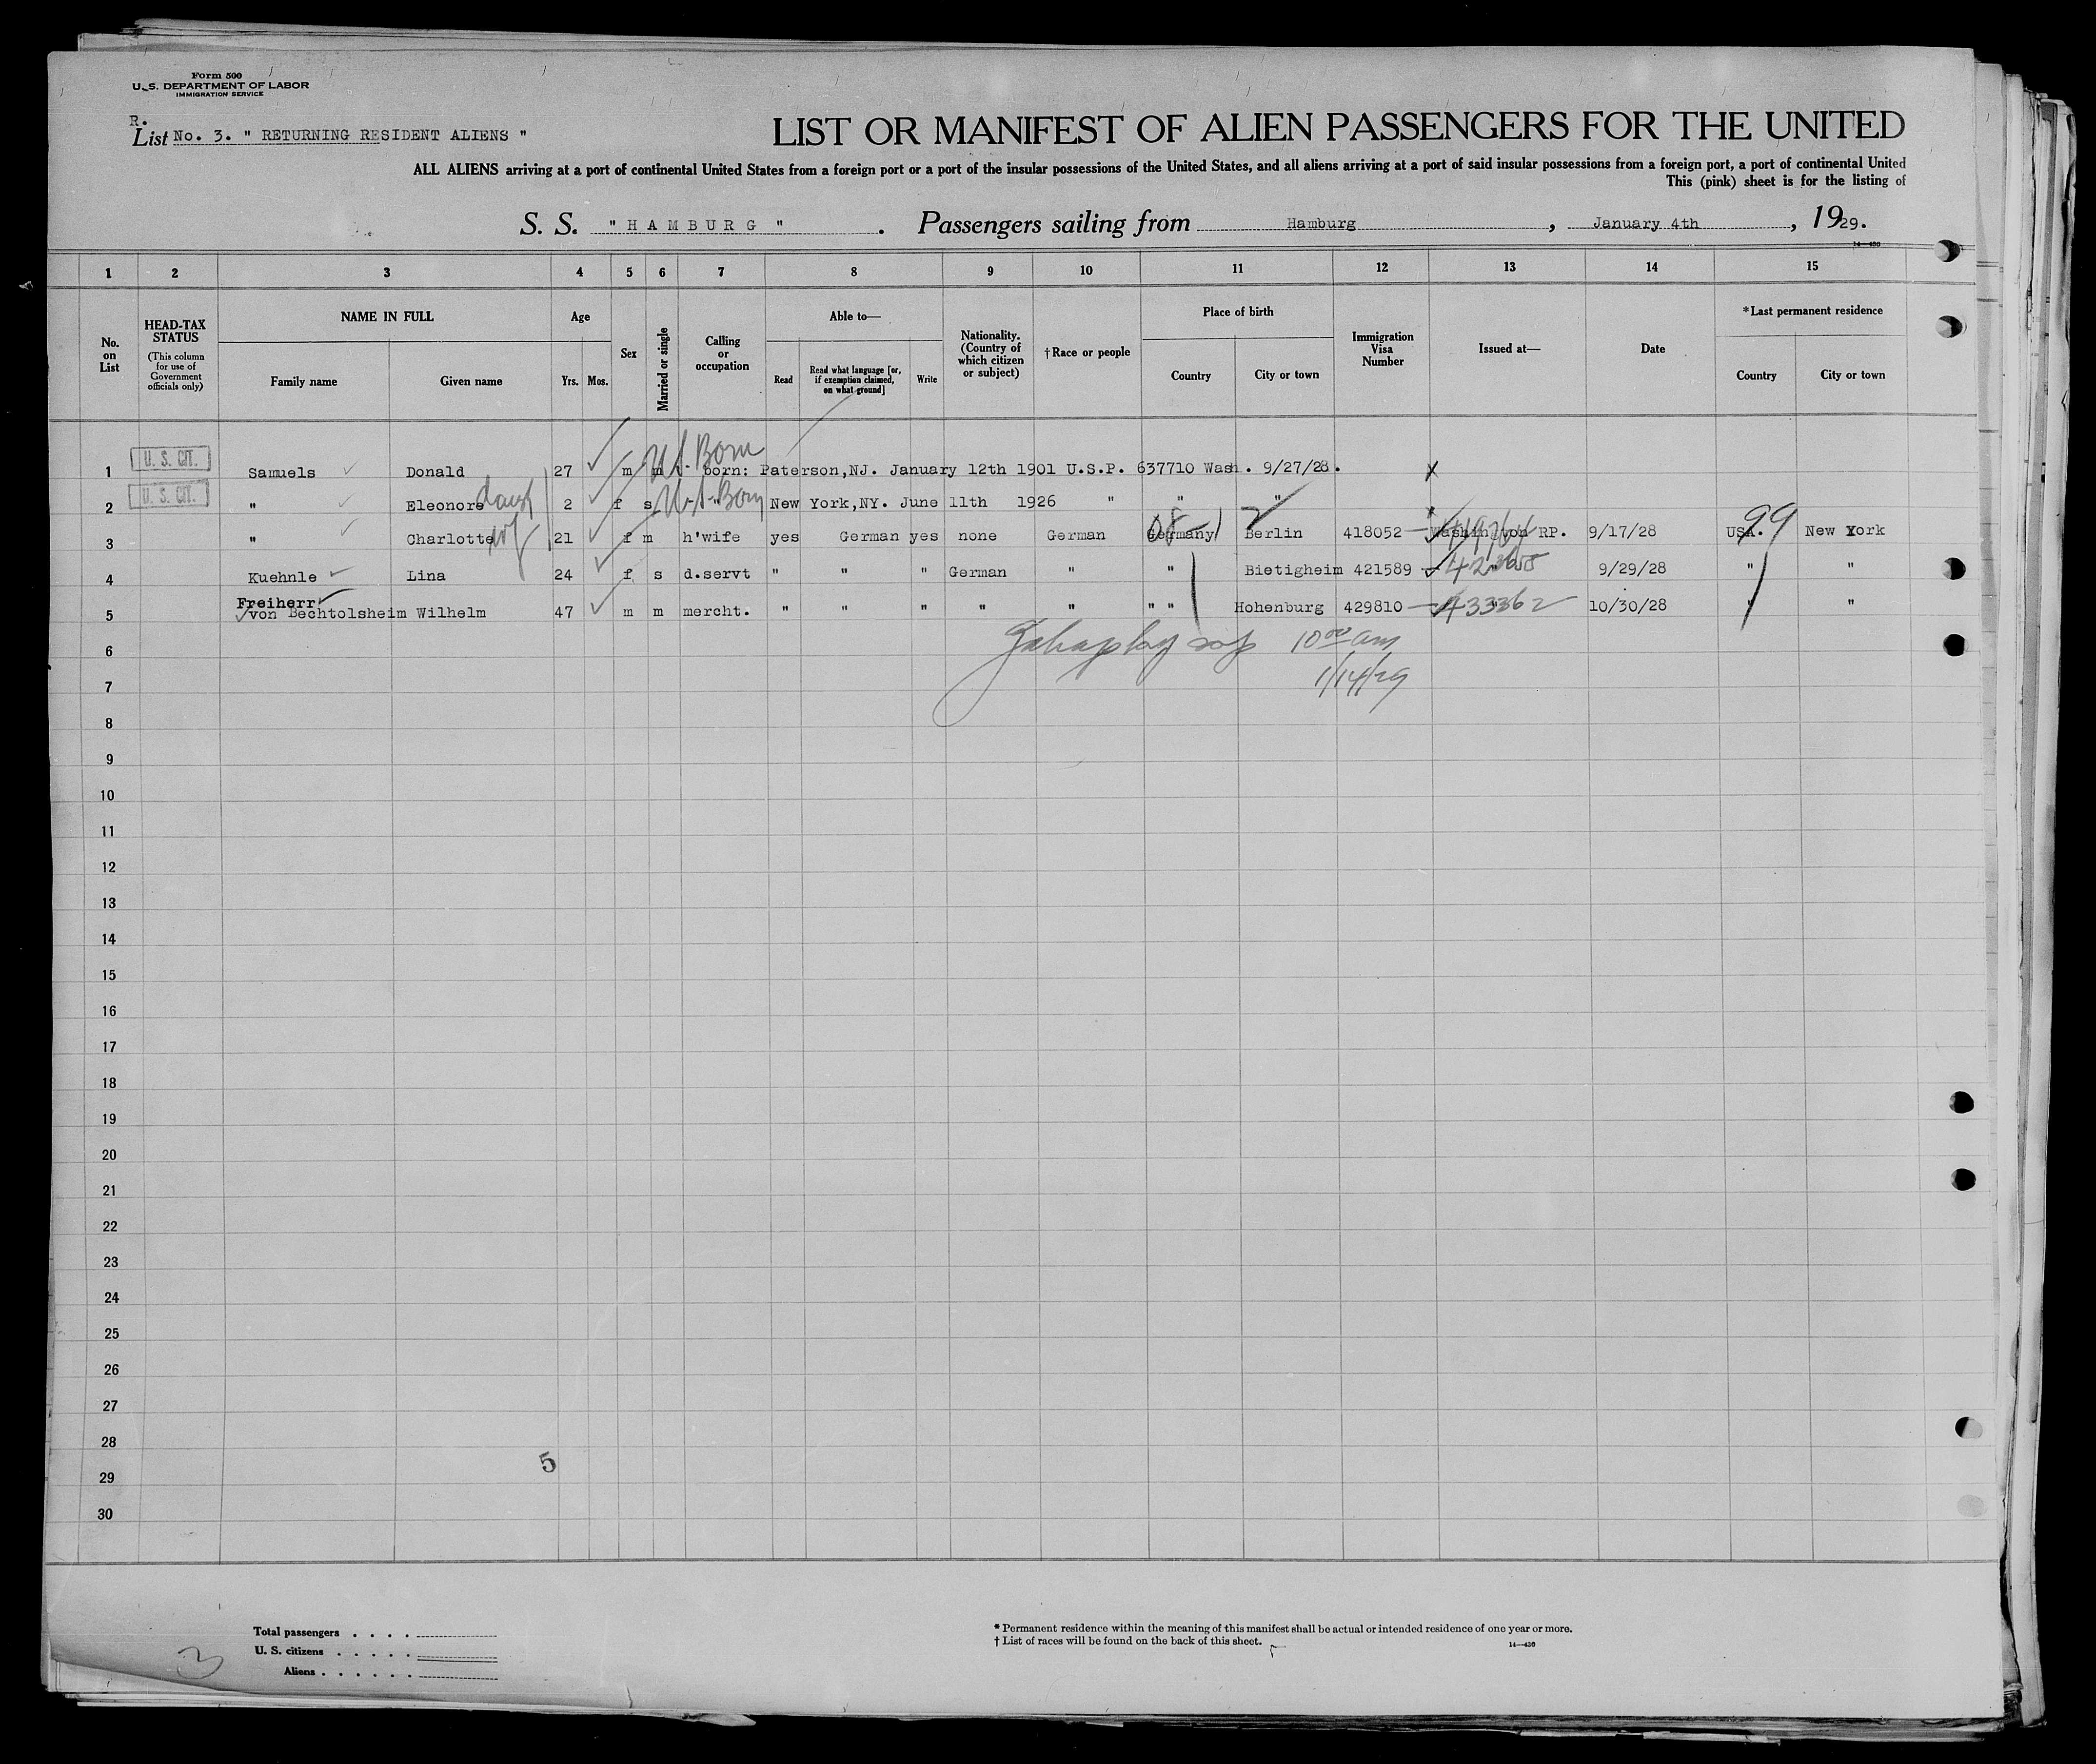 Form 500
U. S. DEPARTMENT OF LABOR
IMMIGRATION SERVICE
R.
List No. 3. " RETURNING RESIDENT ALIENS "
LIST OR MANIFEST OF ALIEN PASSENGERS FOR THE UNITED
ALL ALIENS arriving at a port of continental United States from a foreign port or a port of the insular possessions of the United States, and all aliens arriving at a port of said insular possessions from a foreign port, a port of continental United
This (pink) sheet is for the listing of
S. S. " H A M B U R G ". Passengers sailing from Hamburg, January 4th, 1929.
14—430
1 2 3 4 5 6 7 8 9 10 11 12 13 14 15
No. on List
HEAD-TAX STATUS
(This column for use of Government officials only)
NAME IN FULL
Family name Given name
Age
Yrs. Mos.
Sex
Married or single
Calling or occupation
Able to—
Read
Read what language [or, if exemption claimed, on what ground]
Write
Nationality. (Country of which citizen or subject)
†Race or people
Place of birth
Country City or town
Immigration Visa Number
Issued at—
Date
*Last permanent residence
Country City or town
US Born
1 U. S. CIT. Samuels Donald 27 m m born: Paterson,NJ. January 12th 1901 U.S.P. 637710 Wash. 9/27/28. x
2 U. S. CIT. " Eleonore daug 2 f s U.S. Born " New York,NY. June 11th 1926 " " "
3 " Charlotte wf 21 f m h'wife yes German yes none German 08-1 Germany Berlin 418052 — Washington RP. 9/17/28 USA. 99 New York
4 Kuehnle Lina 24 f s d.servt " " " German " " Bietigheim 421589 " 9/29/28 " "
Freiherr
5 von Bechtolsheim Wilhelm 47 m m mercht. " " " " " " " Hohenburg 429810 — 433362 " 10/30/28 " "
10 00 am
6
1/14/29
7
8
9
10
11
12
13
14
15
16
17
18
19
20
21
22
23
24
25
26
27
28
5
29
30
Total passengers . . . .
U. S. citizens . . . . .
Aliens . . . . . .
3
* Permanent residence within the meaning of this manifest shall be actual or intended residence of one year or more.
† List of races will be found on the back of this sheet.
14—430